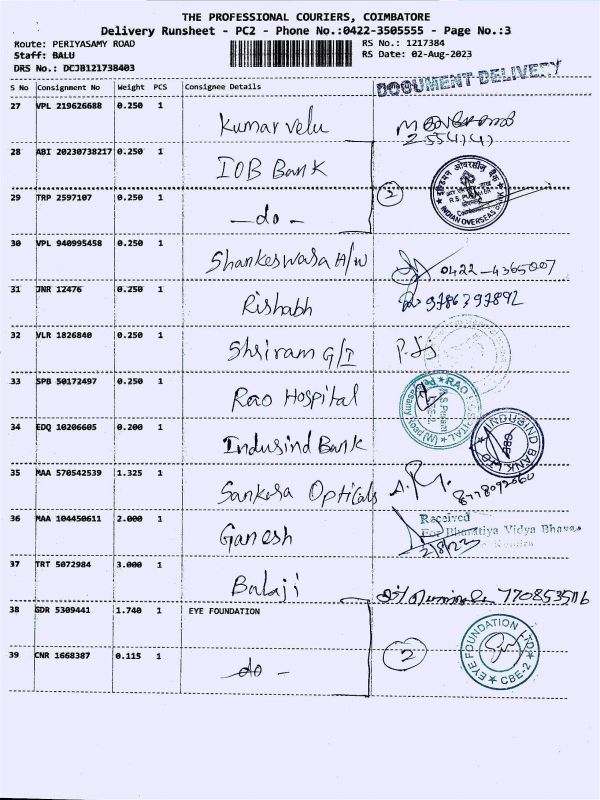 THE PROFESSIONAL COURIERS, COIMBATORE
Delivery Runsheet - PC2 - Phone No.:0422-3505555 - Page No.:3
Route: PERIYASAMY ROAD RS No.: 1217384
Staff: BALU RS Date: 02-Aug-2023
DRS No.: DCJB121738403
DOCUMENT DELIVERY
S No Consignment No Weight PCS Consignee Details
27 VPL 219626688 0.250 1 Kumar velu
28 ABI 20230738217 0.250 1 IOB Bank
INDIAN OVERSEAS BANK
29 TRP 2597107 0.250 1 -do- 2
30 VPL 940995458 0.250 1 Shankeswara H/W 0422-4365007
31 JNR 12476 0.250 1 Rishabh 9786797892
32 VLR 1826840 0.250 1 Shriram G/I
33 SPB 50172497 0.250 1 Rao Hospital
RAO HOSPITAL
34 EDQ 10206605 0.200 1 Indusind Bank
INDUSIND BANK LTD
35 MAA 570542539 1.325 1 Sankera Opticals
36 MAA 104450611 2.000 1 Ganesh
Received
For Bharatiya Vidya Bhavan
2/8/23 Kendra
37 TRT 5072984 3.000 1 Balaji
38 GDR 5309441 1.740 1 EYE FOUNDATION
39 CNR 1668387 0.115 1 -do- 2
EYE FOUNDATION LTD
CBE-2